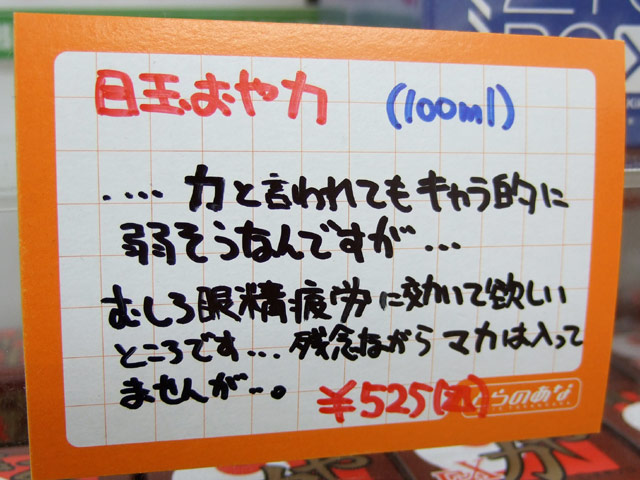 目玉おや力 (100ml)
.... 力と言われてもキャラ的に
弱そうなんですが...
むしろ眼精疲労に効いて欲しい
ところです... 残念ながらマカは入って
ませんが...。
¥525(税込)
とらのあな